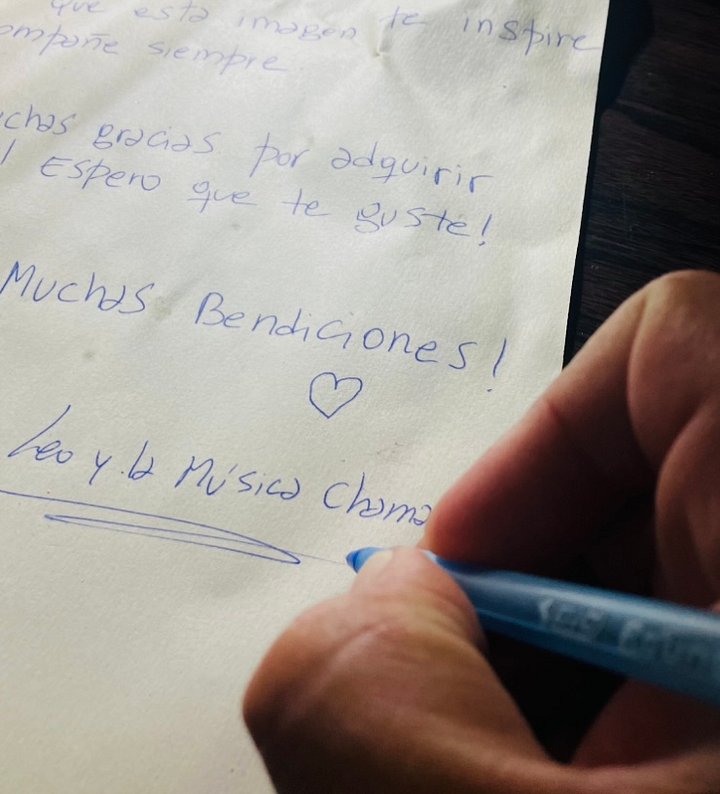 que esta imagen te inspire
ompañe siempre
chas gracias por adquirir
! Espero que te guste!
Muchas Bendiciones!
Leo y la Música Chama